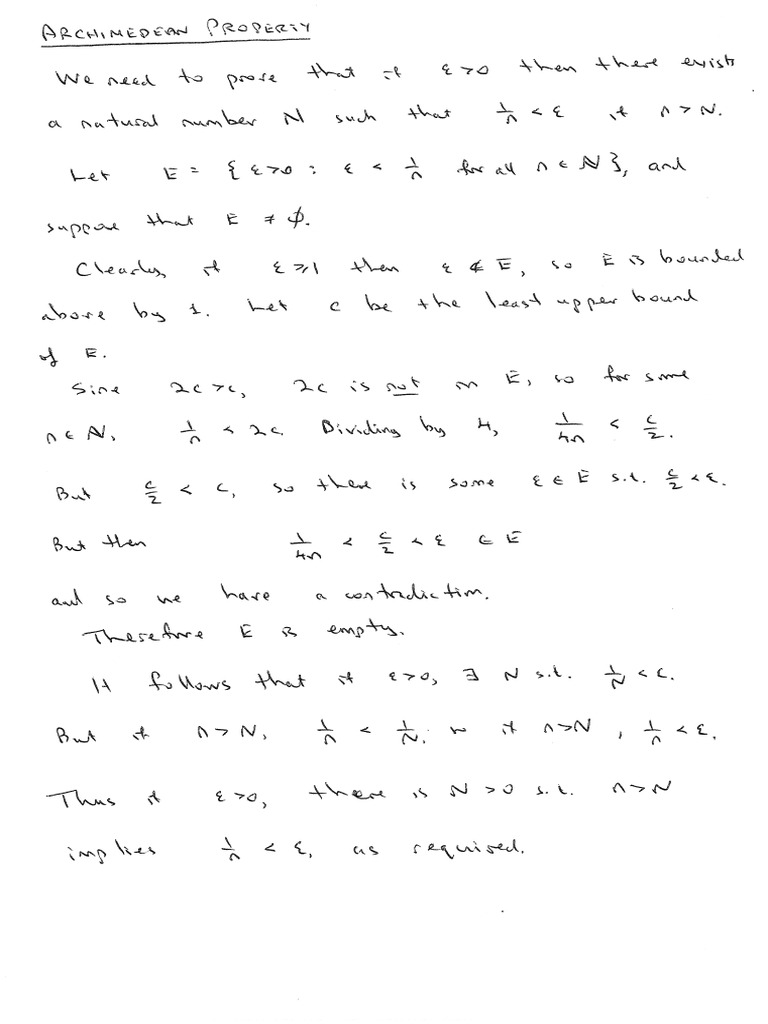 ARCHIMEDEAN PROPERTY
We need to prove that if ε>0 then there exists
a natural number N such that 1/n < ε if n > N.
Let E = {ε>0 : ε < 1/n for all n ∈ ℕ}, and
suppose that E ≠ ∅.
Clearly, if ε ⩾ 1 then ε ∉ E, so E is bounded
above by 1. Let c be the least upper bound
of E.
Sine 2c > c, 2c is not in E, so for some
n ∈ ℕ, 1/n < 2c. Dividing by 4, 1/4n < c/2.
But c/2 < c, so there is some ε ∈ E s.t. c/2 < ε.
But then 1/4n < c/2 < ε ∈ E
and so we have a contradiction.
Therefore E is empty.
It follows that if ε>0, ∃ N s.t. 1/N < ε.
But if n > N, 1/n < 1/N. so if n>N, 1/n < ε.
Thus if ε>0, there is N > 0 s.t. n>N
implies 1/n < ε, as required.